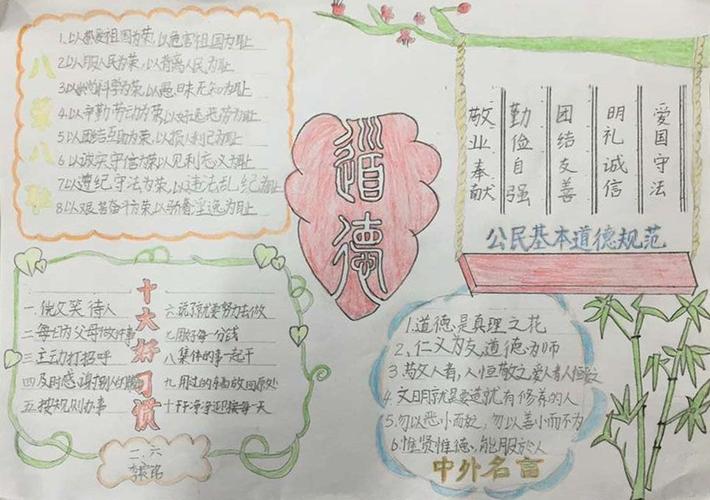 八荣八耻
1.以热爱祖国为荣,以危害祖国为耻
2.以服人民为荣,以背离人民为耻
3.以崇尚科学为荣,以愚昧无知为耻
4.以辛勤劳动为荣,以好逸恶劳为耻
5.以团结互助为荣,以损人利己为耻
6.以诚实守信为荣,以见利忘义为耻
7.以遵纪守法为荣,以违法乱纪为耻
8.以艰苦奋斗为荣以骄奢淫逸为耻
道德
爱国守法
明礼诚信
团结友善
勤俭自强
敬业奉献
公民基本道德规范
十大好习惯
一.微笑待人
二.每日为父母做件事
三.主动打招呼
四.及时感谢别人的
五.按规则办事
六.说了就要努力去做
七.用好每一分钱
八.集体的事一起干
九.用过的东西放回原处
十.干干净净迎接每一天
二、六
1.道德是真理之花
2.仁义为友,道德为师
3.敬人者,人恒敬之爱人者人恒爱
4.文明就是要造就有修养的人
5.勿以恶小而为,勿以善小而不为
6.惟贤惟德,能服於人
中外名言